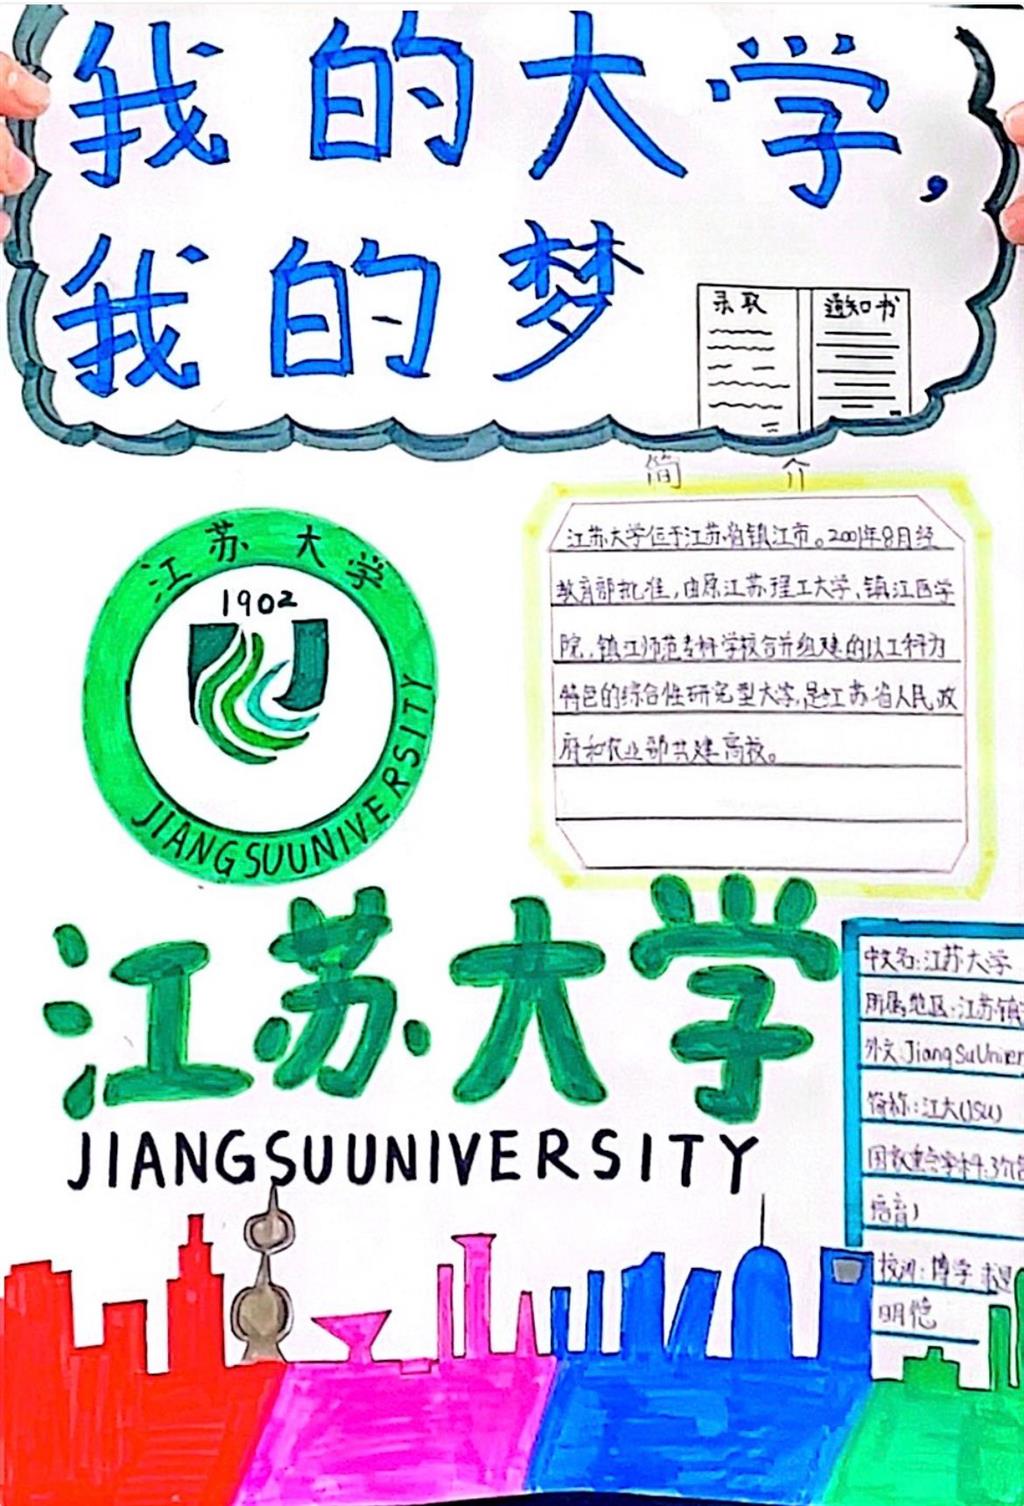 我的大学,
我的梦
录取
通知书
简 介
江苏大学
1902
JIANGSUUNIVERSITY
江苏大学位于江苏省镇江市。2001年8月经
教育部批准,由原江苏理工大学、镇江医学
院、镇江师范专科学校合并组建的以工科为
特色的综合性研究型大学,是江苏省人民政
府和农业部共建高校。
江苏大学
JIANGSUUNIVERSITY
中文名:江苏大学
所属地区:江苏镇
外文:JiangSuUniver
简称:江大(JSU)
国家重点学科:3个(
培育)
校训:博学
明德